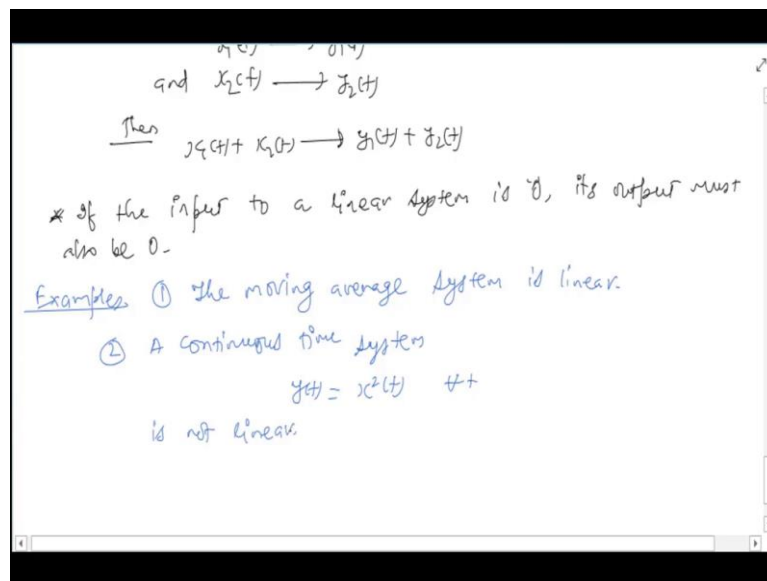 and x₂(t) ⟶ y₂(t)
Then x₁(t) + x₂(t) ⟶ y₁(t) + y₂(t)
* If the input to a linear system is 0, its output must
also be 0.
Examples ① The moving average system is linear.
② A continuous time system
y(t) = x²(t) ∀t
is not linear.